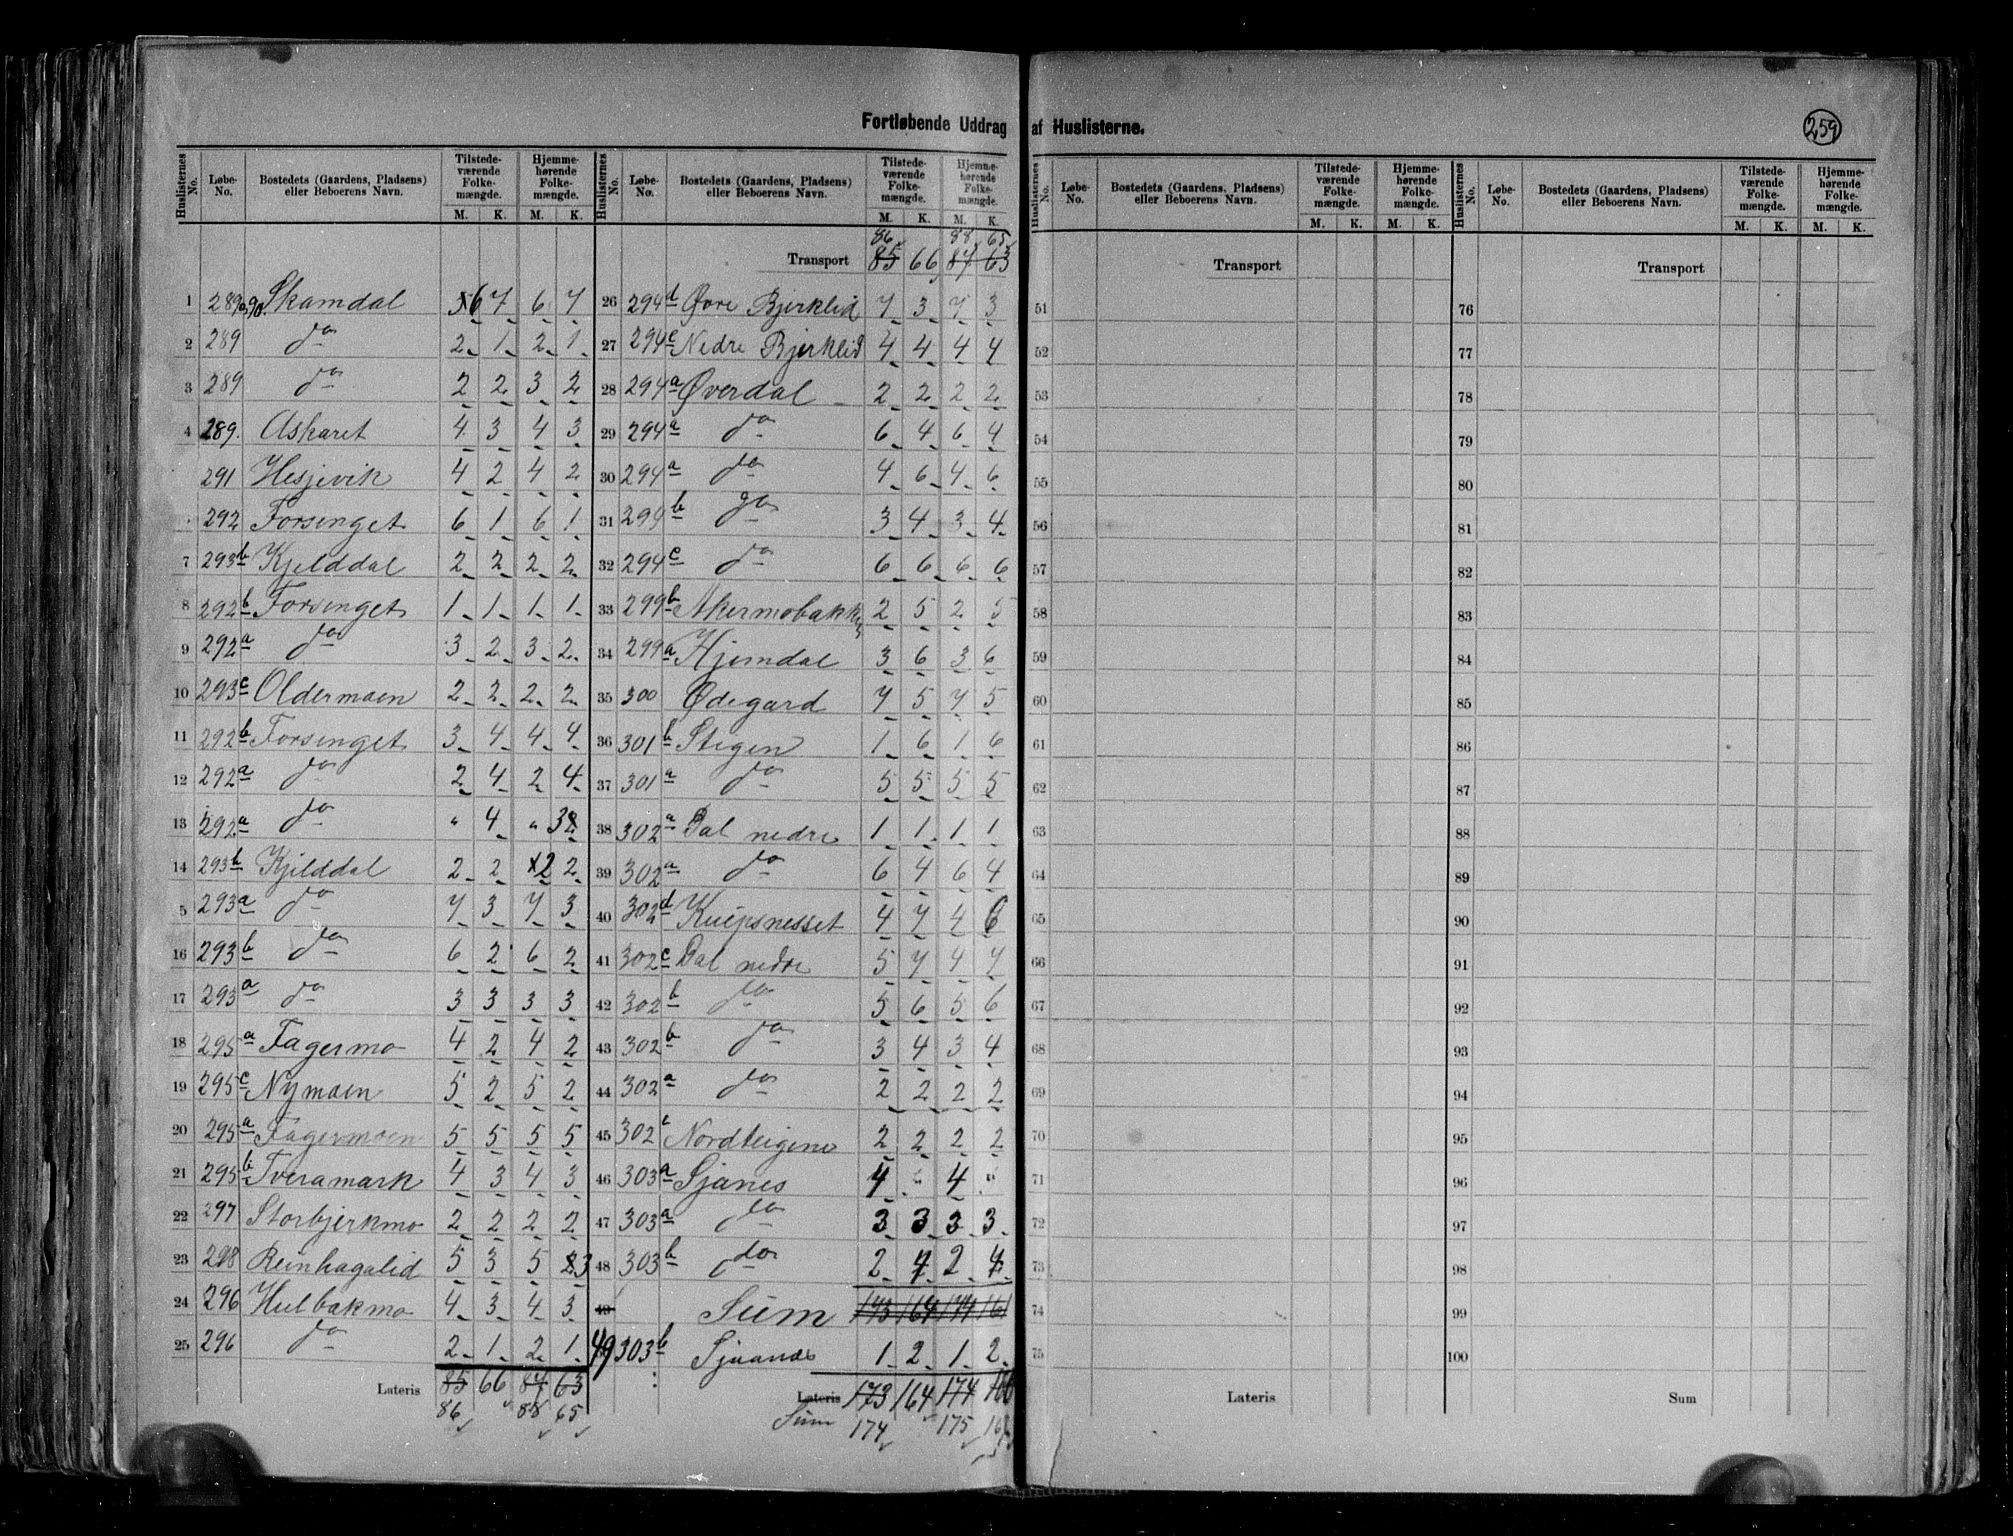 Fortløbende Uddrag af Huslisterne.
259
Huslisternes No. Løbe-No. Bostedets (Gaardens, Pladsens) eller Beboerens Navn. Tilstede-værende Folke-mængde. M. K. Hjemme-hørende Folke-mængde. M. K.
1 289 Skamdal 6 7 6 7
2 289 do 2 1 2 1
3 289 do 2 2 3 2
4 289. Askaret 4 3 4 3
291 Hesjevik 4 2 4 2
292 Forsinget 6 1 6 1
7 293b Kjelddal 2 2 2 2
8 292b Forsinget 1 1 1 1
9 292a do 3 2 3 2
10 293c Oldermoen 2 2 2 2
11 292b Forsinget 3 4 4 4
12 292a do 2 4 2 4
13 292a do " 4 " 3
14 293b Kjelddal 2 2 2 2
5 293a do 7 3 7 3
16 293b do 6 2 6 2
17 293a do 3 3 3 3
18 295a Fagermo 4 2 4 2
19 295c Nymoen 5 2 5 2
20 295a Fagermoen 5 5 5 5
21 295b Tveramark 4 3 4 3
22 297 Storbjerkmo 2 2 2 2
23 298 Reinhagalid 5 3 5 3
24 296 Hulbakmo 4 3 4 3
25 296 do 2 1 2 1
Lateris 85 66 87 63
86 88 65
Huslisternes No. Løbe-No. Bostedets (Gaardens, Pladsens) eller Beboerens Navn. Tilstede-værende Folke-mængde. M. K. Hjemme-hørende Folke-mængde. M. K.
86 88 65
Transport 85 66 87 63
26 294d Øvre Bjerklid 7 3 7 3
27 294c Nedre Bjerklid 4 4 4 4
28 294a Øverdal 2 2 2 2
29 294a do 6 4 6 4
30 294a do 4 6 4 6
31 294b do 3 4 3 4
32 294c do 6 6 6 6
33 299b Akermobakken 2 5 2 5
34 299a Hjemdal 3 6 3 6
35 300 Ødegard 7 5 7 5
36 301b Stigen 1 6 1 6
37 301a do 5 5 5 5
38 302a Dal nedre 1 1 1 1
39 302a do 6 4 6 4
40 302d 4 7 4 6
41 302c Dal nedre 5 7 4 7
42 302b do 5 6 5 6
43 302b do 3 4 3 4
44 302a do 2 2 2 2
45 302c Nordteigene 2 2 2 2
46 303a Sjånes 4 " 4 "
47 303a do 3 3 3 3
48 303b do 2 4 2 4
49 Sum 173 164 174 161
49 303b Sjaanes 1 2 1 2
Lateris 173 164 174
Sum 174 175
Huslisternes No. Løbe-No. Bostedets (Gaardens, Pladsens) eller Beboerens Navn. Tilstede-værende Folke-mængde. M. K. Hjemme-hørende Folke-mængde. M. K.
Transport
51
52
53
54
55
56
57
58
59
60
61
62
63
64
65
66
67
68
69
70
71
72
73
74
75
Lateris
Huslisternes No. Løbe-No. Bostedets (Gaardens, Pladsens) eller Beboerens Navn. Tilstede-værende Folke-mængde. M. K. Hjemme-hørende Folke-mængde. M. K.
Transport
76
77
78
79
80
81
82
83
84
85
86
87
88
89
90
91
92
93
94
95
96
97
98
99
100
Sum